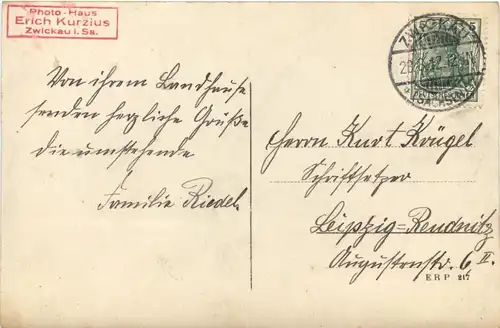 Photo-Haus
Erich Kurzius
Zwickau i. Sa.
Von ihrem Landhause
senden herzliche Grüße
die umstehende
Familie Riedel.
ZWICKAU
(SACHSEN)
Herrn Kurt Krügel
Schriftsetzer
Leipzig=Reudnitz
Augustenstr. 6, II.
ERP 217